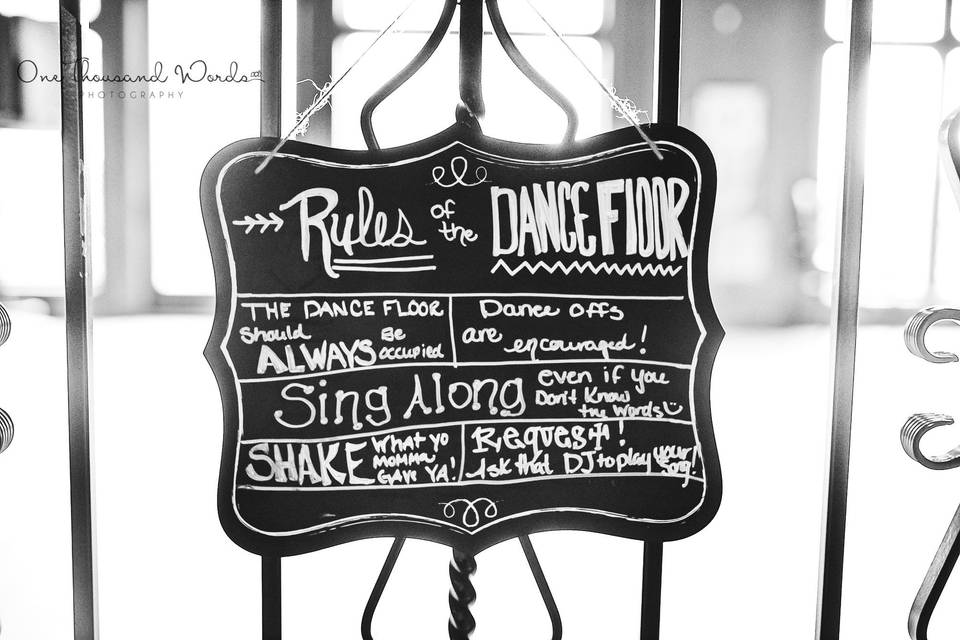 One Thousand Words.com
PHOTOGRAPHY
Rules of the DANCE FlOOR
THE DANCE FLOOR
Should Be
ALWAYS occupied
Dance offs
are encouraged!
Sing Along even if you
Don't Know
the words
SHAKE What yo
MOMMA
GAVE YA!
Request!
Ask that DJ to play your
Song!